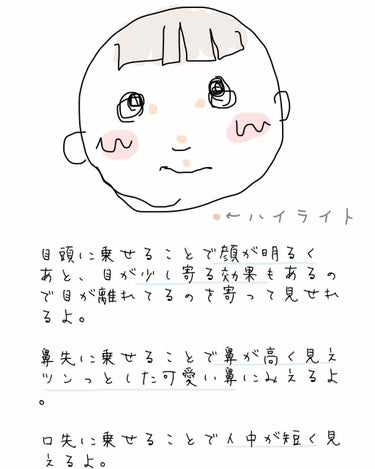 ←ハイライト
目頭に乗せることで顔が明るく
あと、目が少し寄る効果もあるの
で目が離れてるのを寄って見せれ
るよ。
鼻先に乗せることで鼻が高く見え
ツンっとした可愛い鼻にみえるよ
。
口先に乗せることで人中が短く見
えるよ。